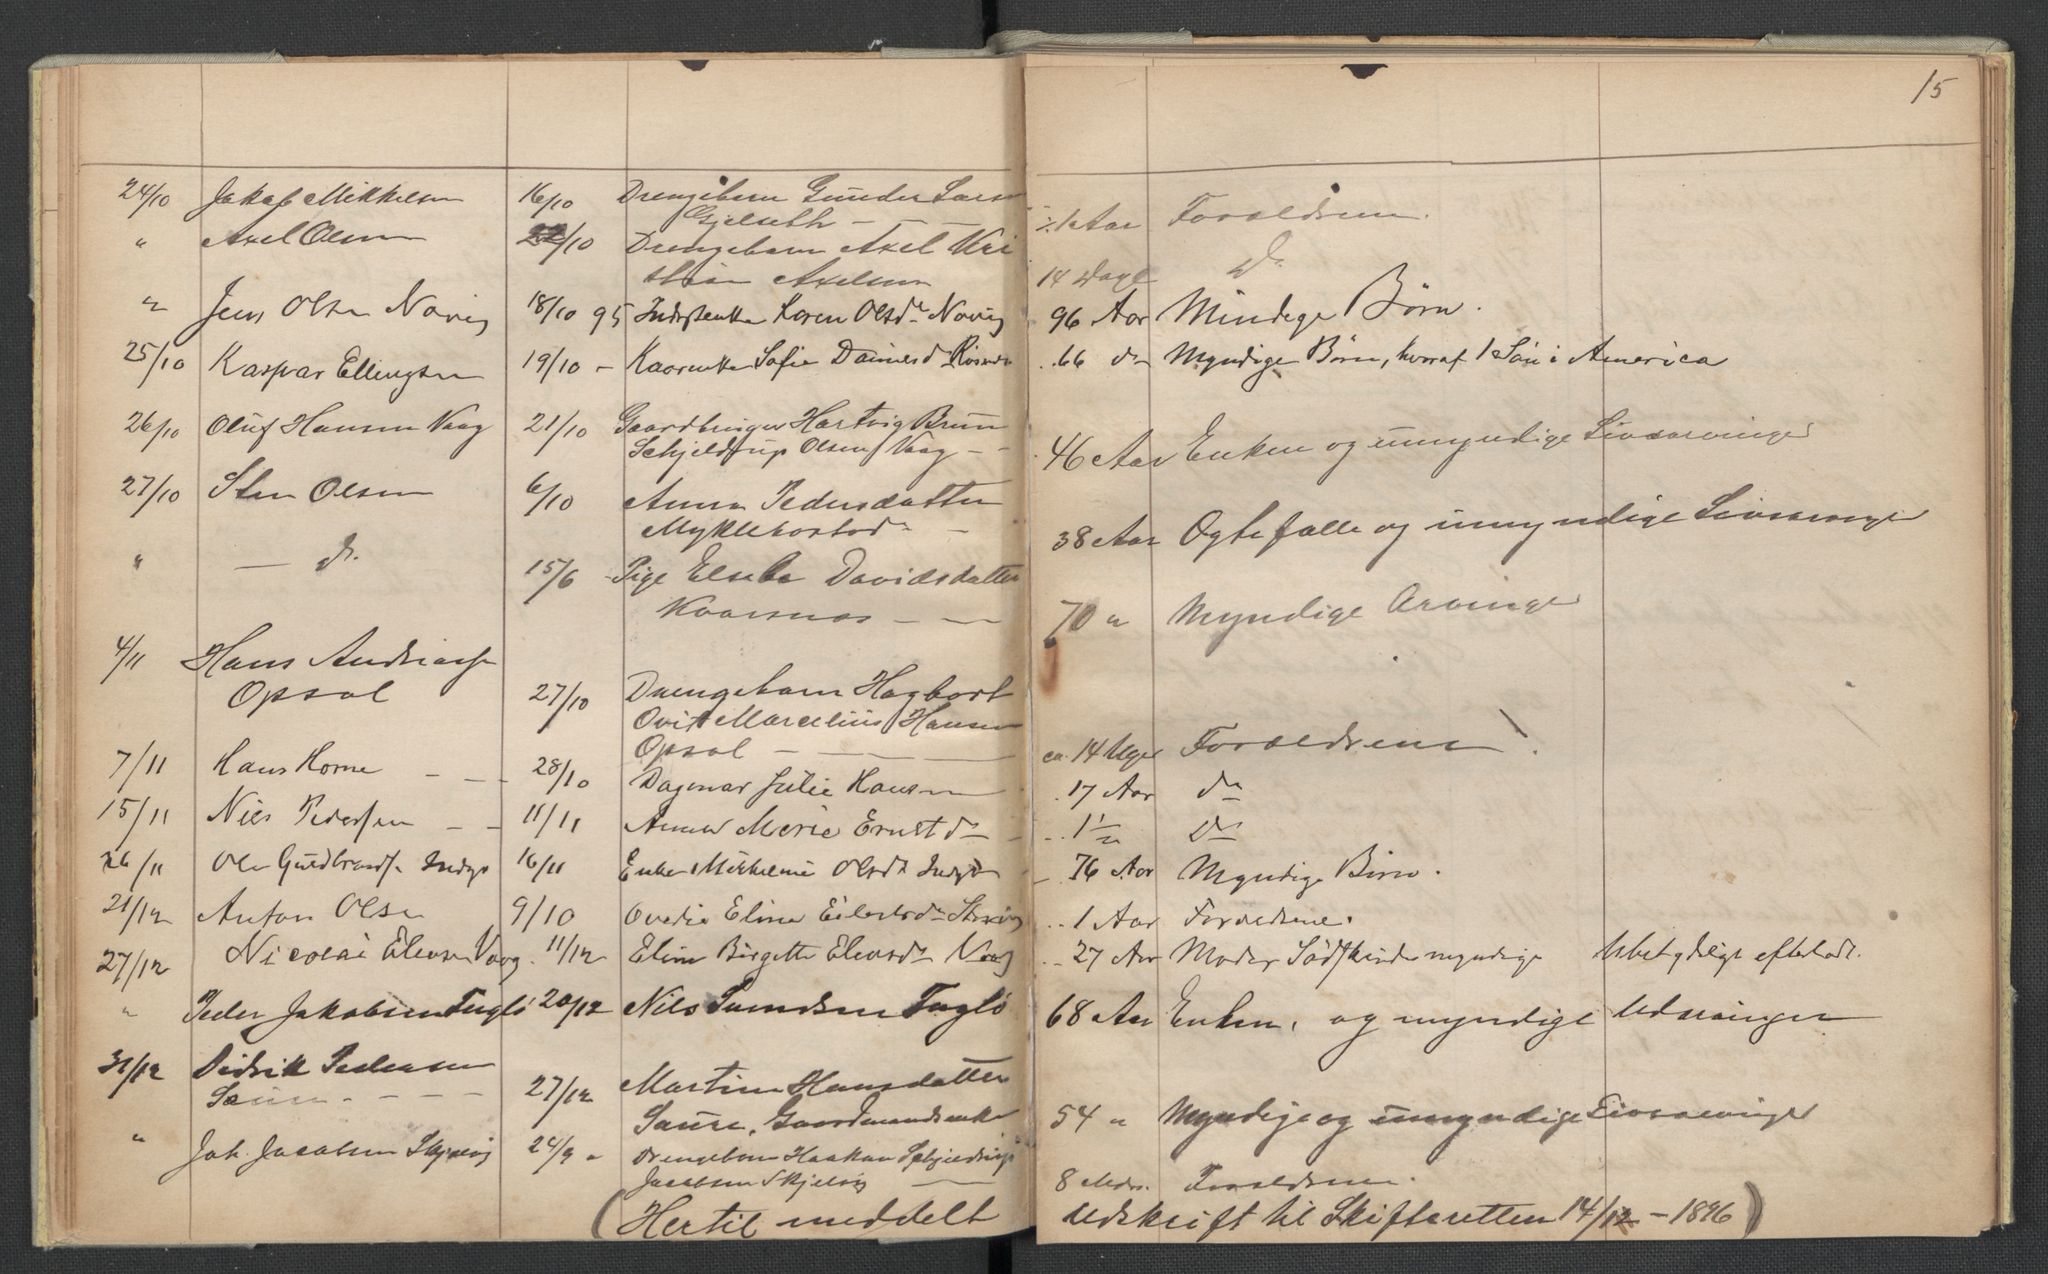 15
24/10 Jakob Mikkelsen 16/10 Drengebarn Gunder Lars
Gjelseth — 1/2 Aar Forældrene.
" Axel Olsen 22/10 Drengebarn Axel Kri
stian Axelsen 14 Dage Do
" Jens Olsen Novig 18/10 95 Inderstenke Karen Olsdr Novig 96 Aar Mindige Børn.
25/10 Kaspar Ellingsen 19/10 - Kaarenke Sofie Danielsd 66 do Myndige Børn, hvoraf 1 Søn i America
26/10 Oluf Hansen Vaag 21/10 Gaardbruger Hartvig Brun
Schjeldrup Olsen Vaag - - 46 Aar Enken og umyndige Livsarvinger
27/10 Sten Olsen 6/10 Anna Pedersdatter
Myklebostad - 38 Aar Ogtefælle og umyndige Livsarvinger
" — do. 15/6 - Pige Elseba Davidsdatter
Kvarsnes — — 70 " Myndige Arvinger
4/11 Hans Andreasen
Opsal 27/10 Drengebarn Hagbart
Marcelius Hansen
Opsal - — — ca. 14 Uger Forældrene
7/11 Hans Horne - - - 28/10 Dagmar Julie Hansen 17 Aar do
15/11 Nils Pedersen - - 11/11 Anna Marie Ernstd 1 1/2 Do
26/11 Ole Guldbrands. Indyr 16/11 Enke Mikkeline Olsdr Indyr 76 Aar Myndige Børn.
21/12 Anton Olsen 9/10 Ovedie Eline Eilertsdr 1 Aar Forældrene.
27/12 Nicolai Eliasen Vaag. 11/12 Elen Birgitte Eliasdr Vaag 27 Aar Moder Sødskende myndige Ubetydelige efterladt.
" Peder Jakobsen Fuglø 20/12 Nils Fuglø 68 Aar Enken, og myndige Udarvinger
31/12 Didrik Pedersen
Saura - - - - 27/12 Martine Hansdatter
Saura, Gaardmandsenke 54 " Myndige og umyndige Livsarvinger
" Joh. Jacobsen Skjelvig 24/9 " Drengebarn Haakon Schjeldrup
Jacobsen Skjelvig — 8 Mdr. Forældrene.
(Hertil meddelt Udskrift til Skifteretten 14/12 - 1896)